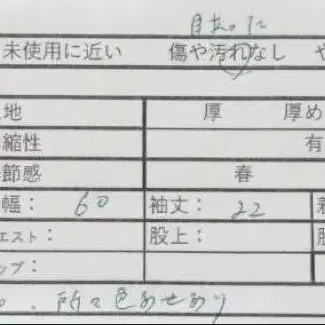 目立つに
未使用に近い 傷や汚れなし や
地 厚 厚め
縮性 有
節感 春
幅： 60 袖丈： 22
エスト： 股上： 股
ップ：
、所々色あせあり